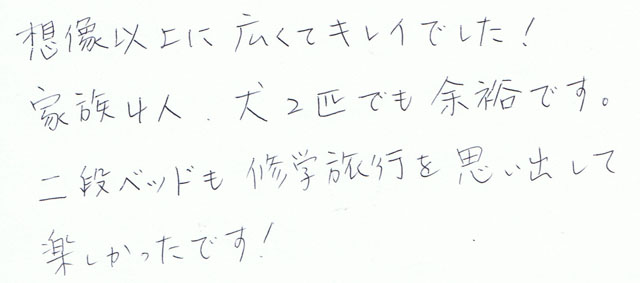 想像以上に広くてキレイでした!
家族4人、犬2匹でも余裕です。
二段ベッドも修学旅行を思い出して
楽しかったです!